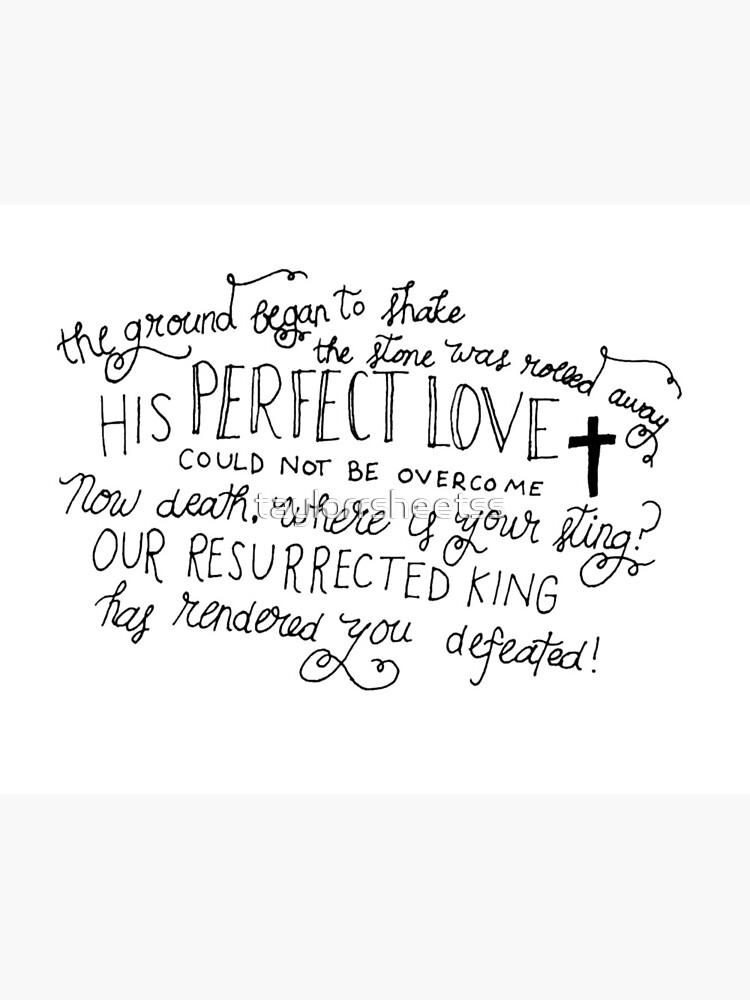 the ground began to shake
the stone was rolled away
HIS PERFECT LOVE
COULD NOT BE OVERCOME
Now death, where is your sting?
taylorrsheetss
OUR RESURRECTED KING
has rendered you defeated!